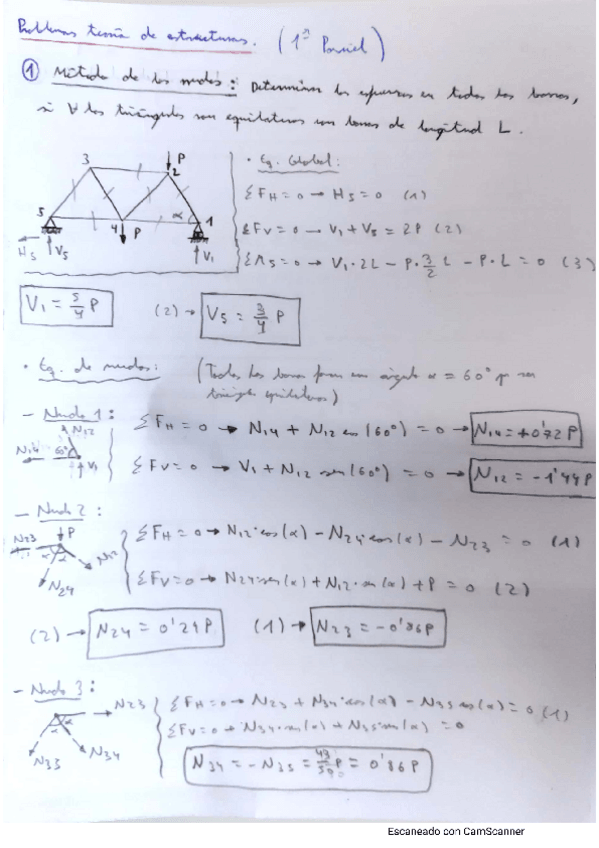 Problemas teoría de estructuras. (1er Parcial)
① Método de los nudos: Determinar los esfuerzos en todas las barras,
si ∀ los triángulos son equiláteros con barras de longitud L.
3
P
2
5
4
P
α
1
H5
V5
V1
• Eq. Global:
ΣFH = 0 → H5 = 0 (1)
ΣFV = 0 → V1 + V5 = 2P (2)
ΣM5 = 0 → V1 · 2L - P · 3/2 L - P · L = 0 (3)
V1 = 5/4 P (2) → V5 = 3/4 P
• Eq. de nudos: (Todas las barras forman un ángulo α = 60° por ser
triángulos equiláteros)
- Nudo 1:
N12
N14
60°
V1
ΣFH = 0 → N14 + N12 cos(60°) = 0 → N14 = +0'72 P
ΣFV = 0 → V1 + N12 sen(60°) = 0 → N12 = -1'44 P
- Nudo 2:
N23
P
α
α
N12
N24
ΣFH = 0 → N12 · cos(α) - N24 · cos(α) - N23 = 0 (1)
ΣFV = 0 → N24 sen(α) + N12 · sen(α) + P = 0 (2)
(2) → N24 = 0'29 P (1) → N23 = -0'86 P
- Nudo 3:
N23
α
α
N35
N34
ΣFH = 0 → N23 + N34 · cos(α) - N35 cos(α) = 0 (1)
ΣFV = 0 → N34 · sen(α) + N35 sen(α) = 0
N34 = -N35 = = 0'86 P
Escaneado con CamScanner